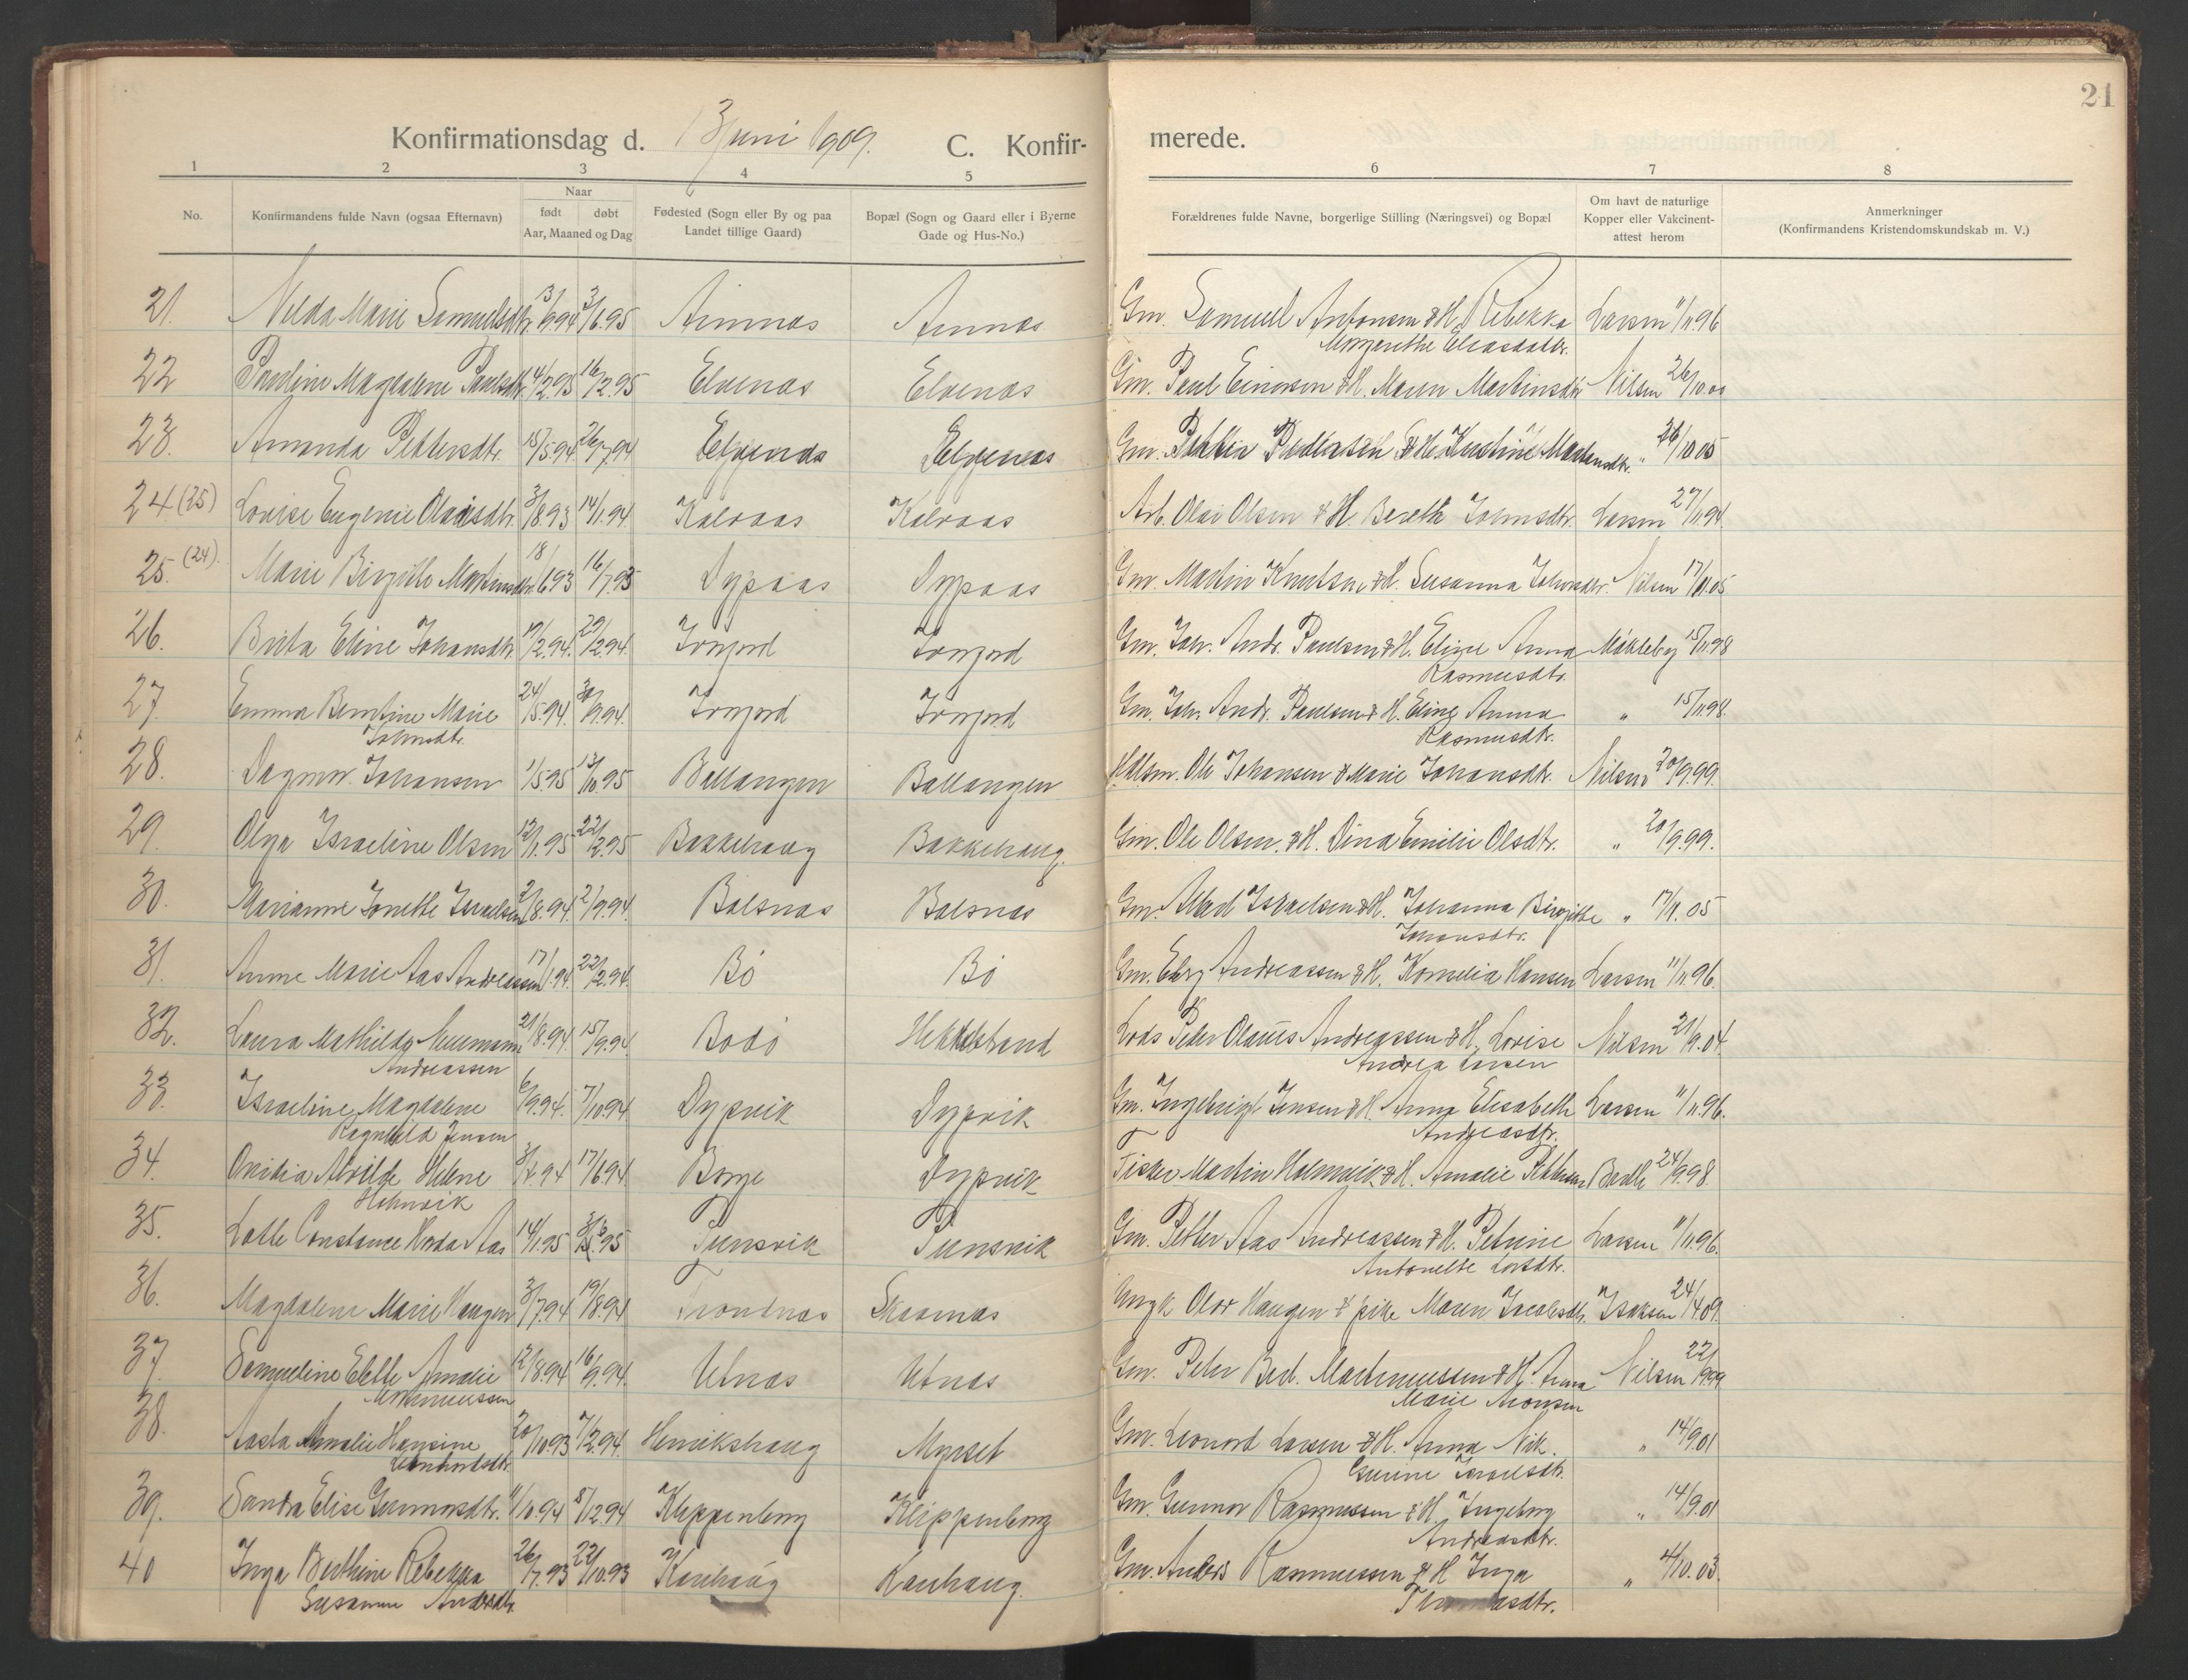 21
Konfirmationsdag d. 13 Juni 1909. C. Konfir- merede.
1 2 3 4 5 6 7 8
No. Konfirmandens fulde Navn (ogsaa Efternavn) Naar født døbt Aar, Maaned og Dag Fødested (Sogn eller By og paa Landet tillige Gaard) Bopæl (Sogn og Gaard eller i Byerne Gade og Hus-No.) Forældrenes fulde Navne, borgerlige Stilling (Næringsvei) og Bopæl Om havt de naturlige Kopper eller Vakcinent-attest herom Anmerkninger (Konfirmandens Kristendomskundskab m. V.)
21. Marie Samuelsdtr. 13/9.94 3/6.95 Arnnæs Arnnæs Gm. Samuel Antonsen & H. Rebekka Larsen 11/11.96
Margrethe Eliasdatr.
22 Pauline Magdalene Paulsdtr. 4/2.95 16/2.95 Elvenæs Elvenæs Gm. Paul Einarsen & H. Maren Martinsdtr. Nilsen 26/10.00
23. Amanda Pettersdtr. 15/5.94 26/7.94 Elvenæs Elvenæs Gm. Petter & H. Kristine " 26/10 05
24 (25) Lovise Eugenie Olaisdtr. 3/8.93 14/1.94 Kalvaas Kalvaas Arb. Olai Olsen & H. Bereth Johnsdtr. Larsen 27/11.94
25. (24) Marie Birgitte Martinsdtr. 18/6.93 16/7.93 Dypaas Dypaas Gm. Martin Knutsen & H. Susanna Johnsdtr. Nilsen 17/11.05
26. Birta Eline Johansdtr. 19/2.94. 29/2.94. Forfjord Forfjord Gm. Joh. Andr. Paulsen & H. Eline Anna Møkleby 15/11.98
Rasmusdtr.
27. Emma Berntine Marie 24/5.94. 30/9.94. Forfjord Forfjord Gm. Joh. Andr. Paulsen & H. Eline Anna " 15/11.98.
Johnsdtr. Rasmusdtr.
28. Dagmar Johansen 1/5.95 13/10.95 Ballangen Ballangen Ole Johansen & Marie Johansdtr. Nilsen 20/9.99.
29. Olga Israeline Olsen 12/1.95 22/2.95 Bakkehaug Bakkehaug. Gm. Ole Olsen. & H. Dina Emilie Olsdtr. " 20/9.99.
30. Marianne Jonette Israelsen 2/8.94. 2/9.94. Balsnæs Balsnæs Gm. Israelsen & H. Johanna Birgitte " 17/11.05
Johansdtr.
31. Anne Marie Aas Andreassen 17/1.94. 22/2.94. Bø Bø Gm. Andreassen & H. Kornelia Hansen Larsen 11/11.96.
32. Laura Mathilde Neumann 21/8.94 15/9.94. Bodø Hekkelstrand Lods Peter Olaus Andreassen & H. Lovise Nilsen 21/9.04.
Andreassen Andrea Larsen
33. Israeline Magdalene 6/9.94. 7/10.94 Dypvik Dypvik Gm. Ingebrigt Jensen & H. Anna Elisabeth Larsen 11/11.96.
Ragnhild Jensen Andreasdtr.
34. Alvilde Helene 17/6.94 Borge Dypvik Fisker Martin Holmvik & H. Amalie Pettersen 24/9.98.
Holmvik
35. Lotte Constance Aas 14/1.95 Tunsvik Tunsvik Gm. Petter Aas Andreassen & H. Petrine Larsen 11/11.96.
Antonette Larsdtr.
36. Magdalene Marie Haugen 3/7.94 19/8.94 Trondnæs Skarnæs Ungk Olav Haugen & pike Maren Jacobsdtr. Isaksen 24/4.09.
37. Samueline Elette Amalie 12/8.94 16/9.94. Utnæs Utnæs Gm. Peter Mortenussen & H. Anna Nilsen 22/9.99
Martenussen Marie Aronsen
38. Aasta Amalie Hansine 20/10.93 7/2.94. Henrikshaug Myrset Gm. Leonard Larsen & H. Anna Nik. " 14/9.01
Leonhardsdtr. Israelsdtr.
39. Sandra Elise Gunnarsdtr. 11/10.94 8/12.94 Klippenborg Klippenborg Gm. Gunnar Rasmussen & H. Ingeborg " 14/9.01
Andreasdtr.
40 Inga Berthine Rebekka 26/7.93 22/10.93 Karihaug Karihaug. Gm. Anders Rasmussen & H Inga " 4/10.03.
Susanne Andersdtr.